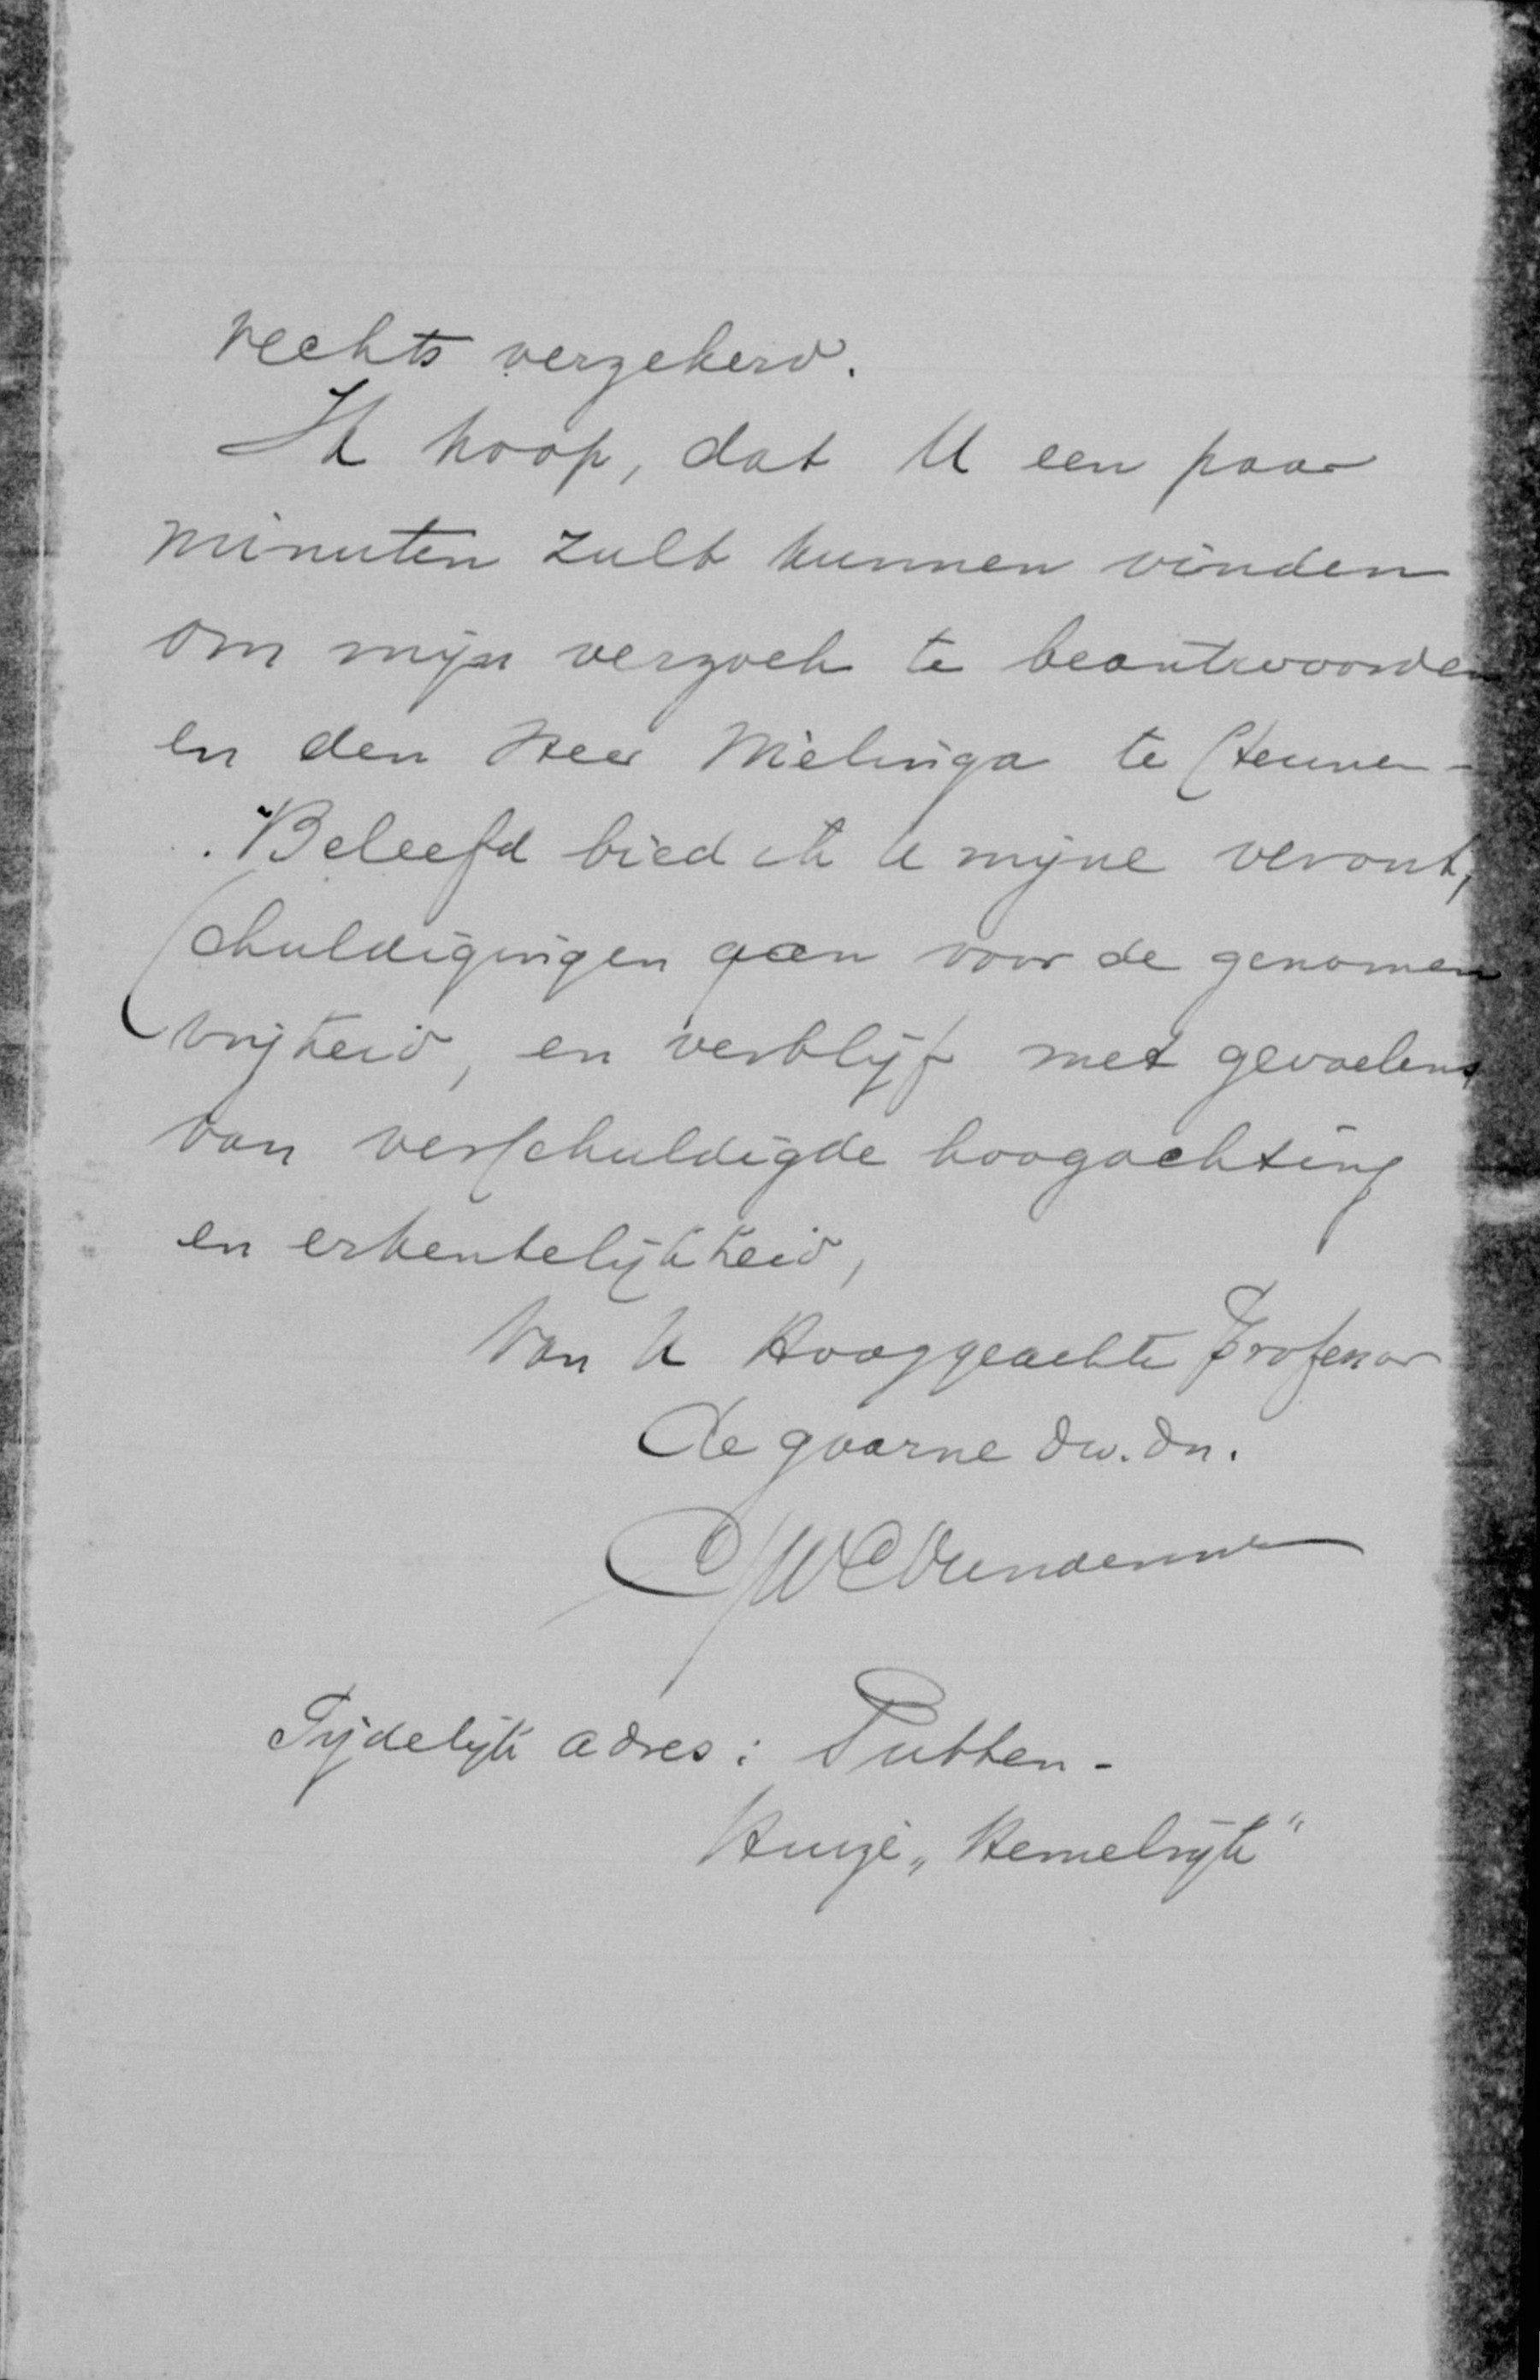 rechts verzekerd.
Ik hoop, dat U een paar
minuten zult kunnen vinden
om mijn verzoek te beantwoorden
en den Heer Mielinga te steunen -
Beleefd bied ik U mijne veront,
schuldigingen aan voor de genomen
vrijheid, en verblijf met gevoelens
van verschuldigde hoogachting
en erkentelijkheid,
Van U Hooggeachte Professor
de gaarne dw. dn.
Tijdelijk adres: Putten -
Huize „Hemelrijk"